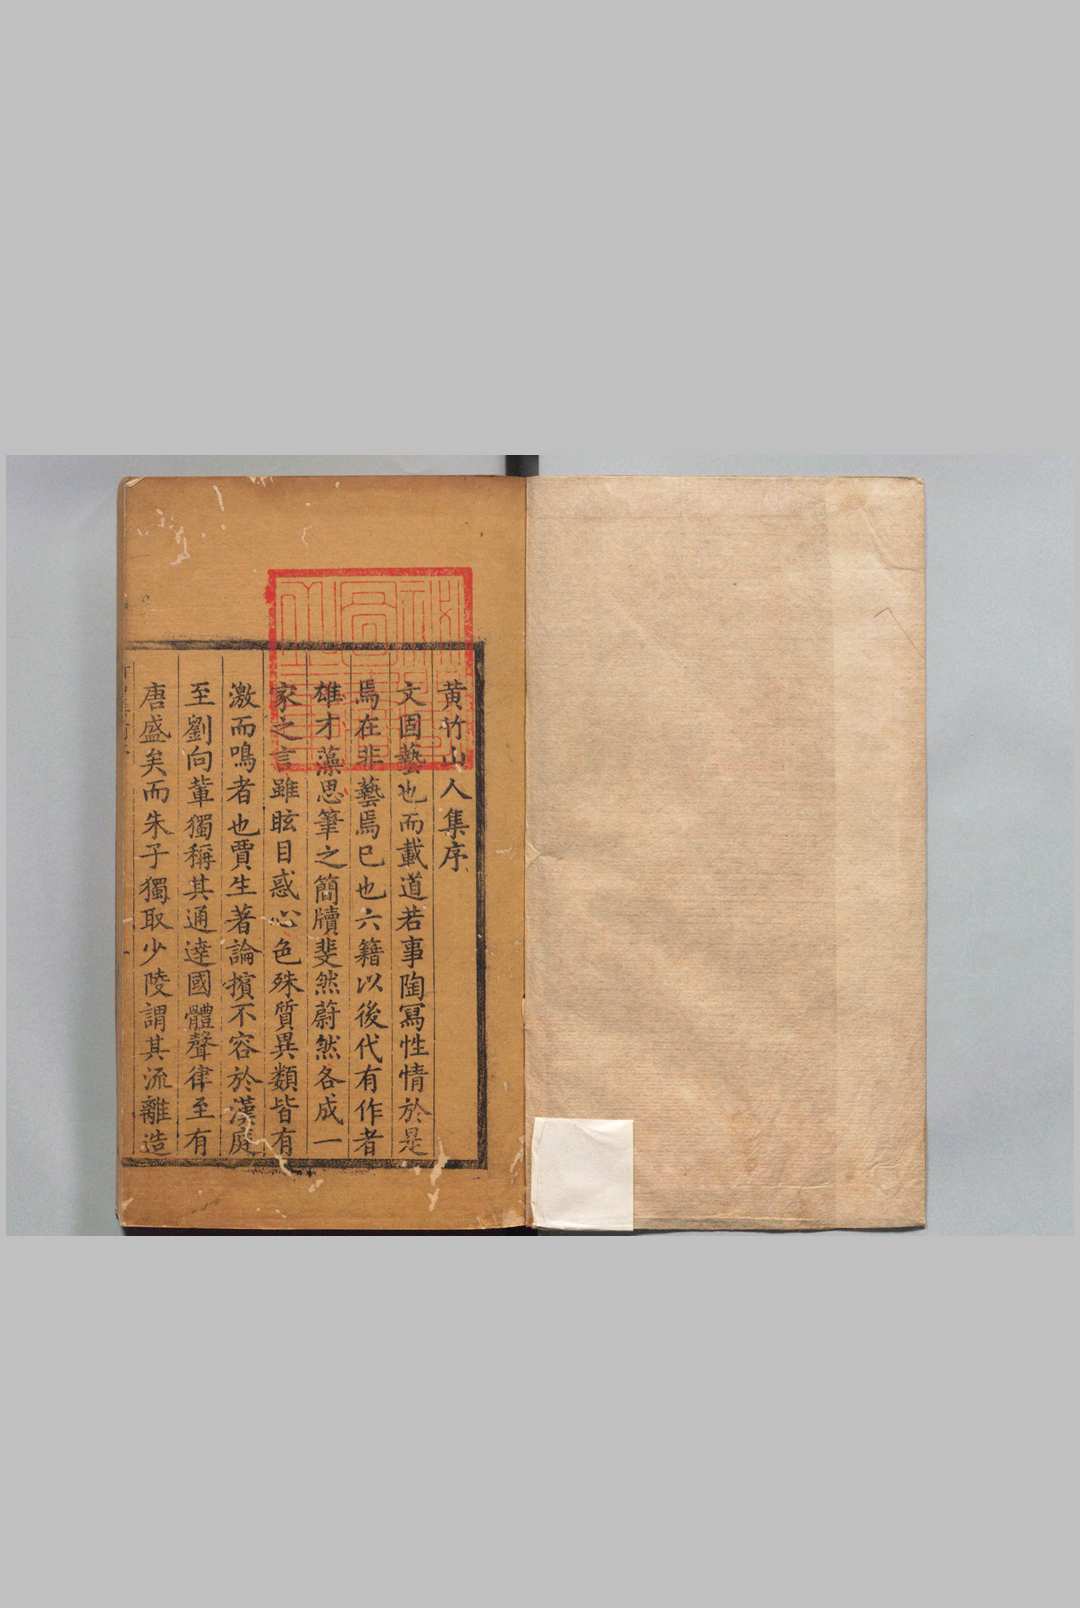 黄竹山人集序
文固藝也而載道若事陶冩性情於是
焉在非藝焉已也六籍以後代有作者
雄才藻思筆之簡牘斐然蔚然各成一
家之言雖眩目惑心色殊質異類皆有
激而鳴者也賈生著論擯不容於漢庭
至劉向輩獨稱其通達國體聲律至有
唐盛矣而朱子獨取少陵謂其流離造